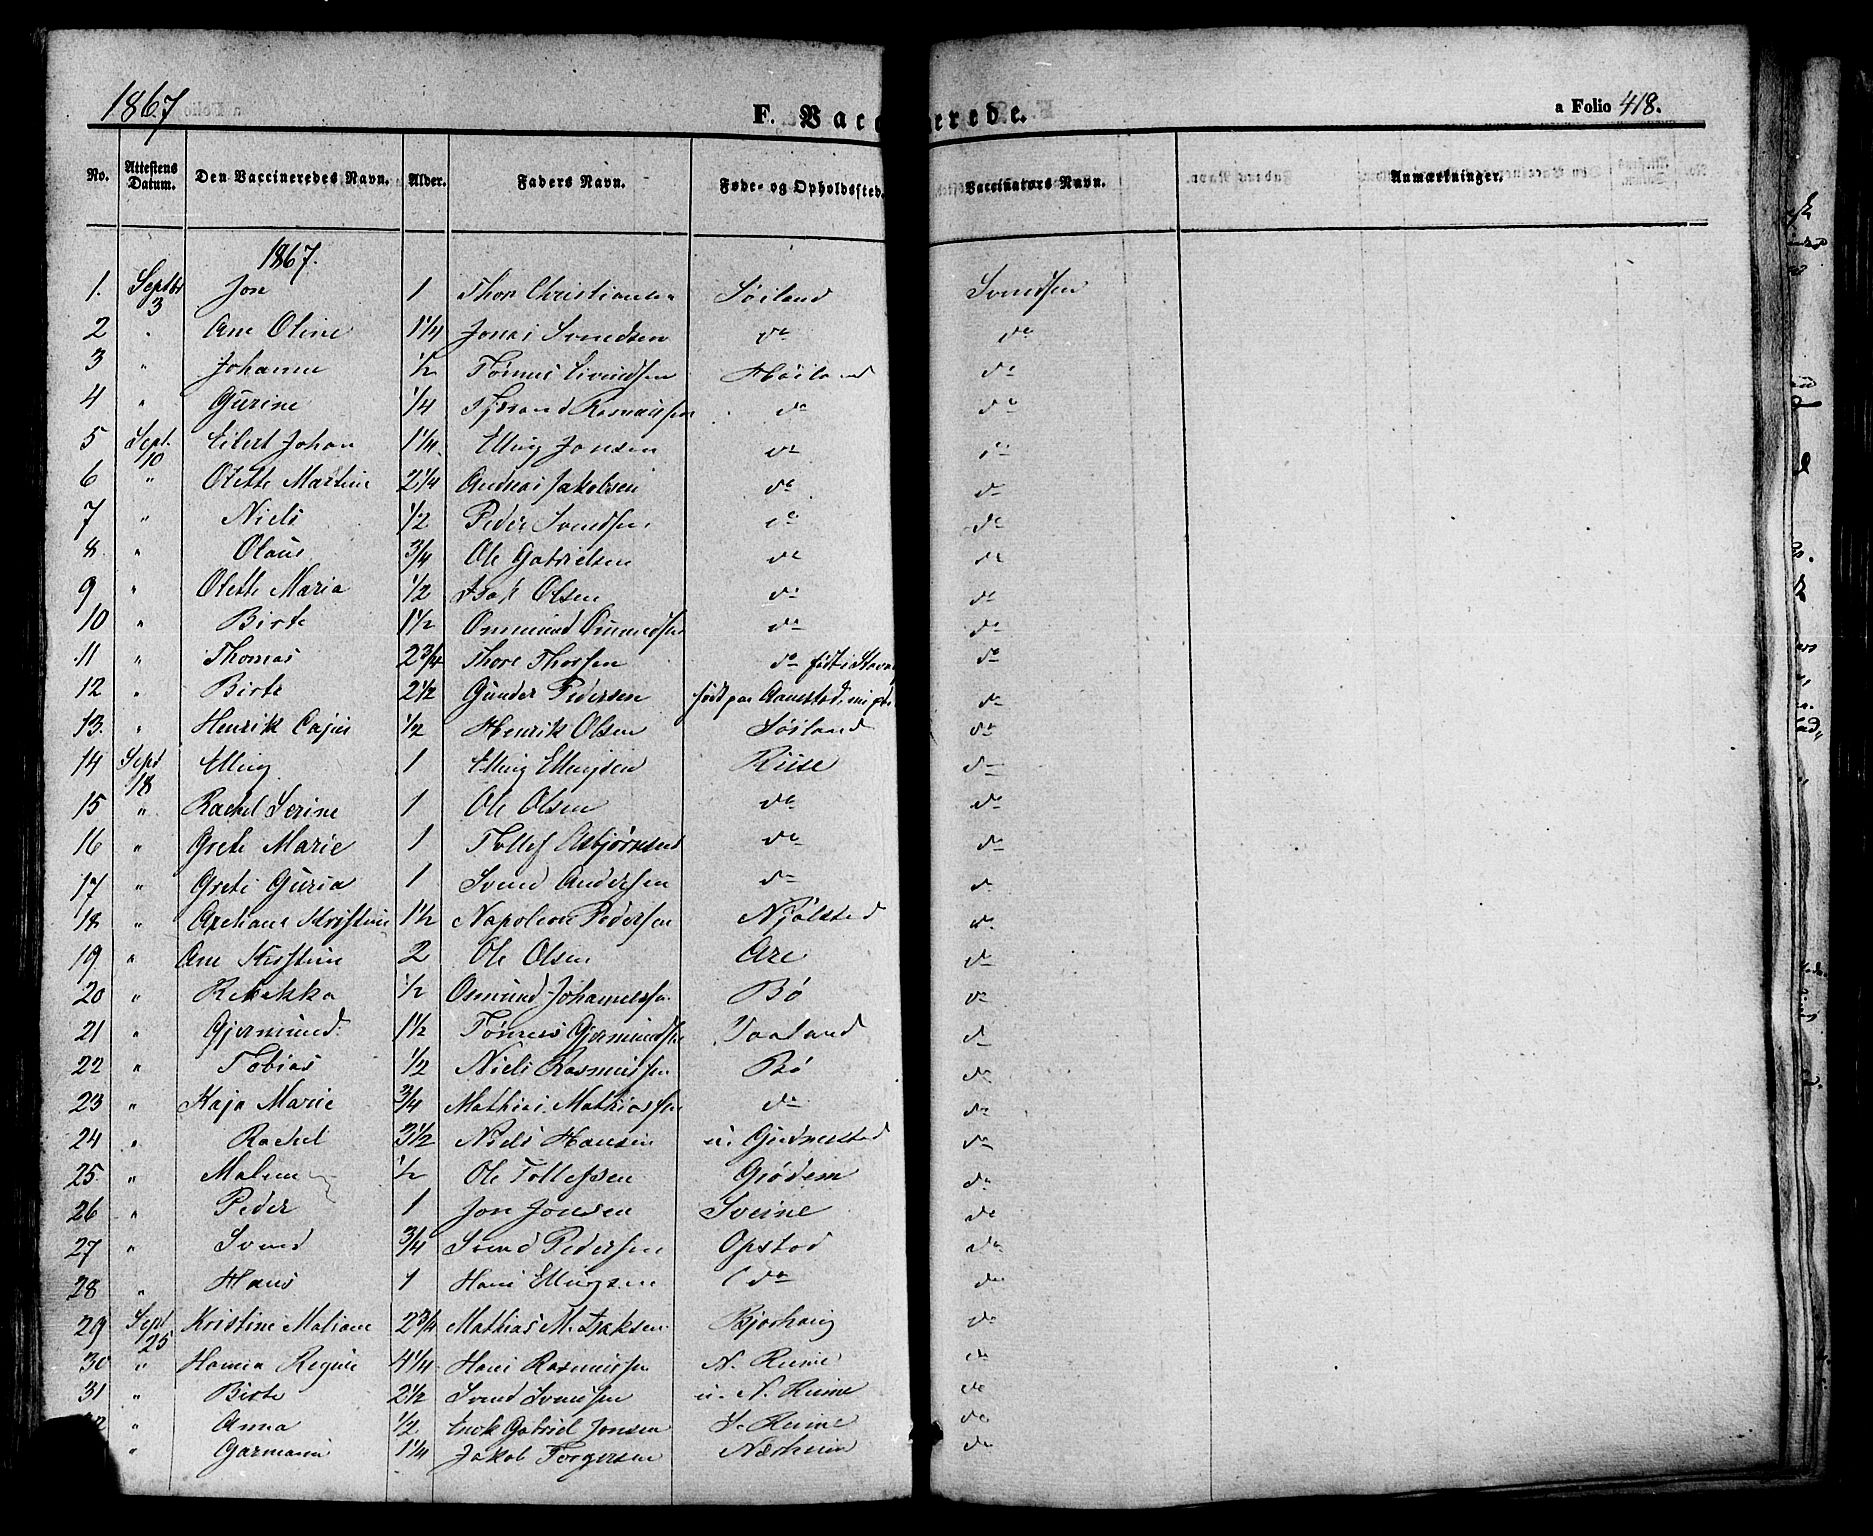 1867
F. Vacc erede.
a Folio 418.
No. Attestens Datum. Den Vaccineredes Navn. Alder. Faders Navn. Føde- og Opholdssted. Vaccinators Navn. Anmærkninger.
1867.
1. Septbr 3 Jon 1 Thore Christiansen Søiland Svendsen
2 " Ane Oline 1 1/4 Jonas Svendsen do do
3 " Johanne 1/2 Tønnes Svendsen Høiland do
4 " Gurine 1/4 Rasmussen do do
5 Sept. 10 Eilert Johan 1 1/4 Elling Jonsen do do
6 " Olette Martine 2 1/4 Andreas Jakobsen do do
7 " Niels 1/2 Peder Svendsen do do
8 " Olaus 3/4 Ole Gabrielsen do do
9 " Olette Maria 1/2 Isak Olsen do do
10 " Birte 1 1/2 Osmund Osmundsen do do
11 " Thomas 2 3/4 Thore Thorsen do født i Stavan do
12 " Birte 2 1/2 Gunder Pedersen født paa do
13. " Henrik Cajus 1/2 Henrik Olsen Søiland do
14 Sept 18 Elling 1 Elling Ellingsen Riise do
15 " Rachel Serine 1 Ole Olsen do do
16 " Grete Marie 1 Tollef Asbjørnsen do do
17 " Grete Guria 1 Svend Andersen do do
18 " Kristine 1 1/2 Napoleon Pedersen Njølstad do
19 " Ane Kirstine 2 Ole Olsen Are do
20 " Rebekka 1/2 Osmund Johannessen Bø do
21 " Gjermund 1 1/2 Tønnes Gjermundsen Taaland do
22 " Tobias 1/2 Niels Rasmussen Bø do
23 " Kaja Marie 3/4 Mathias Mathiassen do do
24 " Rachel 3 1/2 Niels Hansen u. Gudmestad do
25. " Malene 1/2 Ole Tollefsen Grødem do
26 " Peder 1 Jon Jonsen Sveine do
27 " Svend 3/4 Svend Pedersen Opstad do
28 " Hans 1 Hans Ellingsen do do
29 Sept 25 Kristine Maliane 2 3/4 Mathias M. Isaksen Bjorhaug do
30 " Hanna Regine 4 1/4 Hans Rasmussen N. Reime do
31 " Birte 2 1/2 Svend Svendsen u. N. Reime do
" Anna 1/2 Enok Gabriel Jonsen S. Reime do
" Garmann 1 1/4 Jakob Torgersen Nærheim do